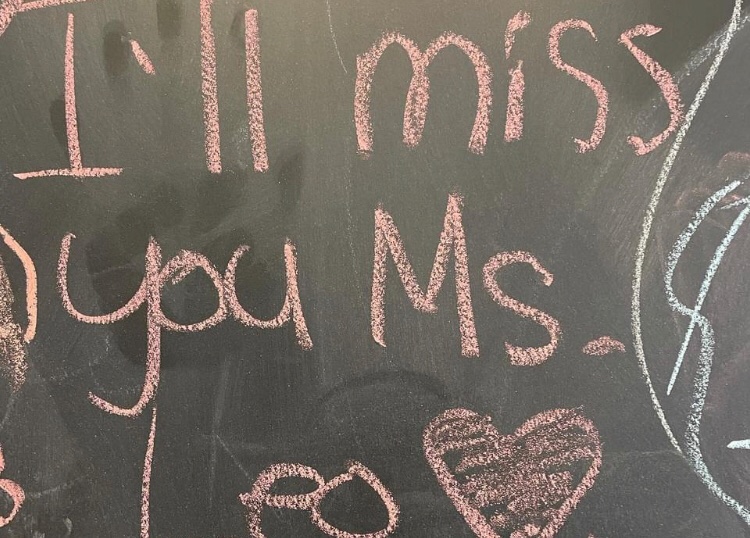 I'll miss
you Ms.